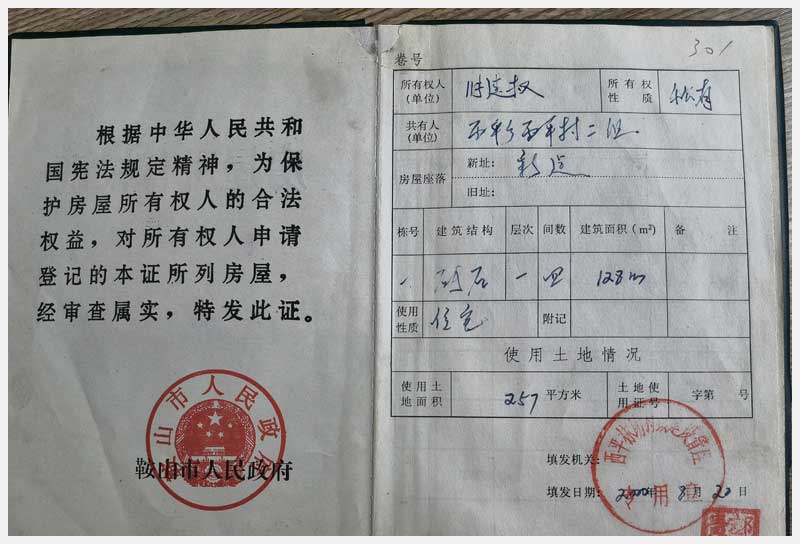 根据中华人民共和
国宪法规定精神，为保
护房屋所有权人的合法
权益，对所有权人申请
登记的本证所列房屋，
经审查属实，特发此证。
鞍山市人民政府
301
卷号
所有权人
(单位)
所有权
性 质
私有
共有人
(单位)
房屋座落
新址：
旧址：
栋号 建筑结构 层次 间数 建筑面积(m²) 备 注
一 四 128m
使用
性质
住宅
附记
使用土地情况
使用土
地面积
257 平方米
土地使
用证号
字第 号
填发机关：
专用章
填发日期： 2000年 8月20日